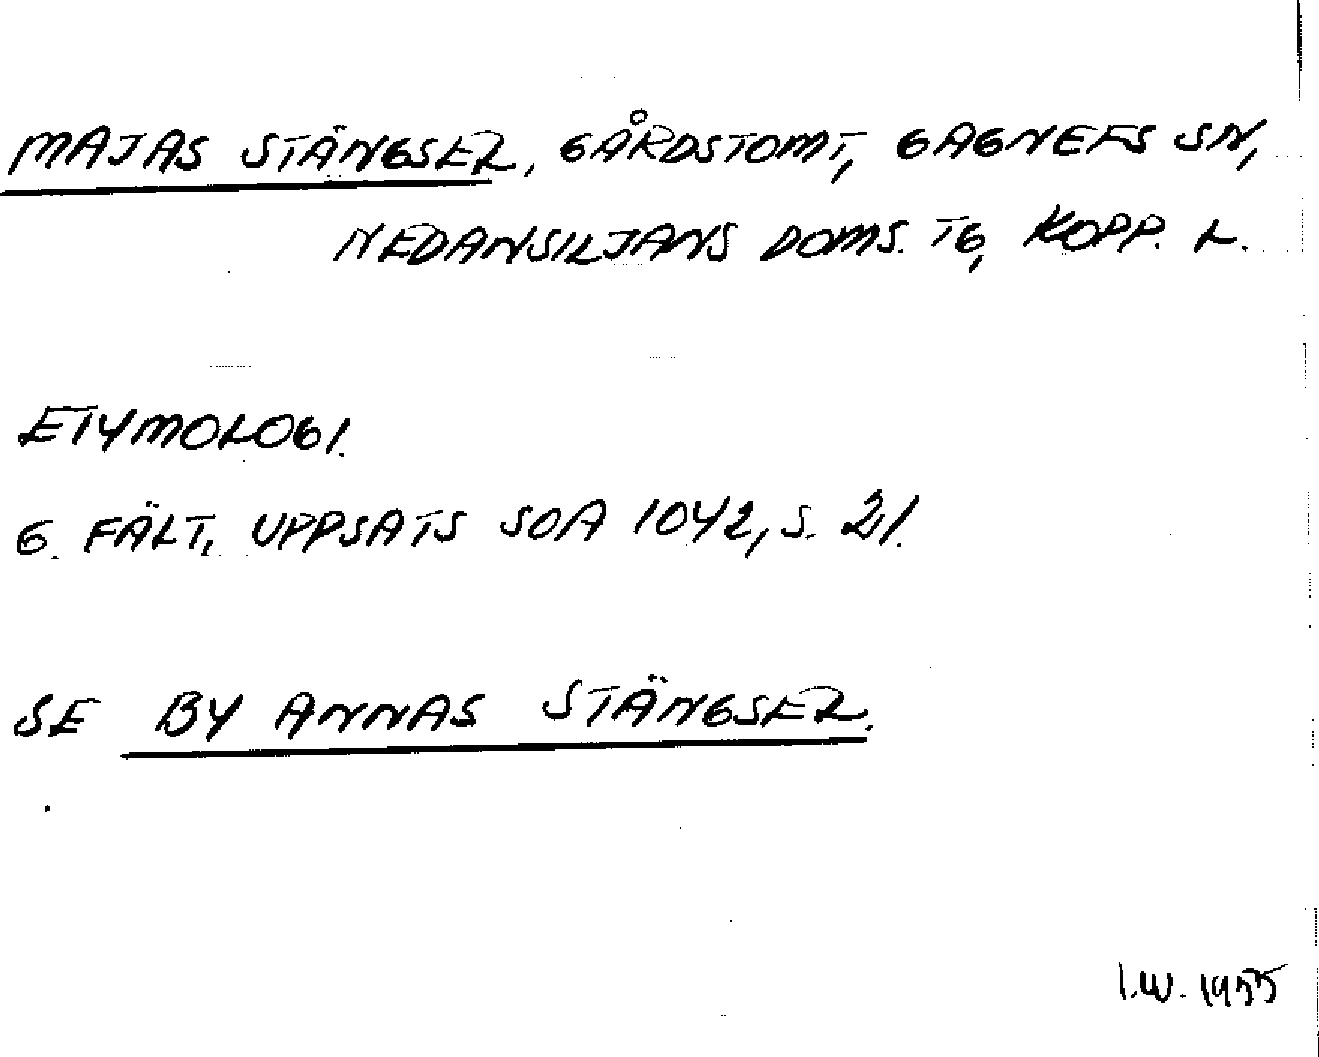 MAJAS STÄNGSEL, GÅRDSTOMT, GAGNEFS SN,
NEDANSILJANS DOMS. TG, KOPP. L.
ETYMOLOGI.
G. FÄLT, UPPSATS SOA 1042, S. 21.
SE BY ANNAS STÄNGSEL.
I.W. 1955